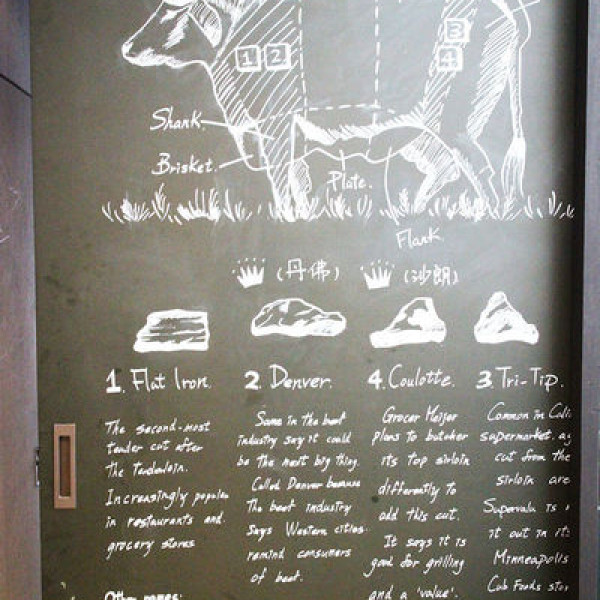 1 2
3
4
Shank
Brisket.
Plate.
Flank
(丹佛)
(沙朗)
1. Flat Iron.
The second-most
tender cut after
the Tenderloin.
Increasingly popular
in restaurants and
grocery stores
Other names:
2. Denver.
Some in the beef
industry say it could
be the next big thing.
Called Denver because
The beef industry
says Western cities
remind consumers
of beef.
4. Coulotte.
Grocer Meijer
plans to butcher
its top sirloin
differently to
add this cut.
It says it is
good for grilling
and a 'value'.
3. Tri-Tip.
Common in
supermarket.
cut from the
sirloin are
Supervalu is
it out in its
Minneapolis
Cub Foods